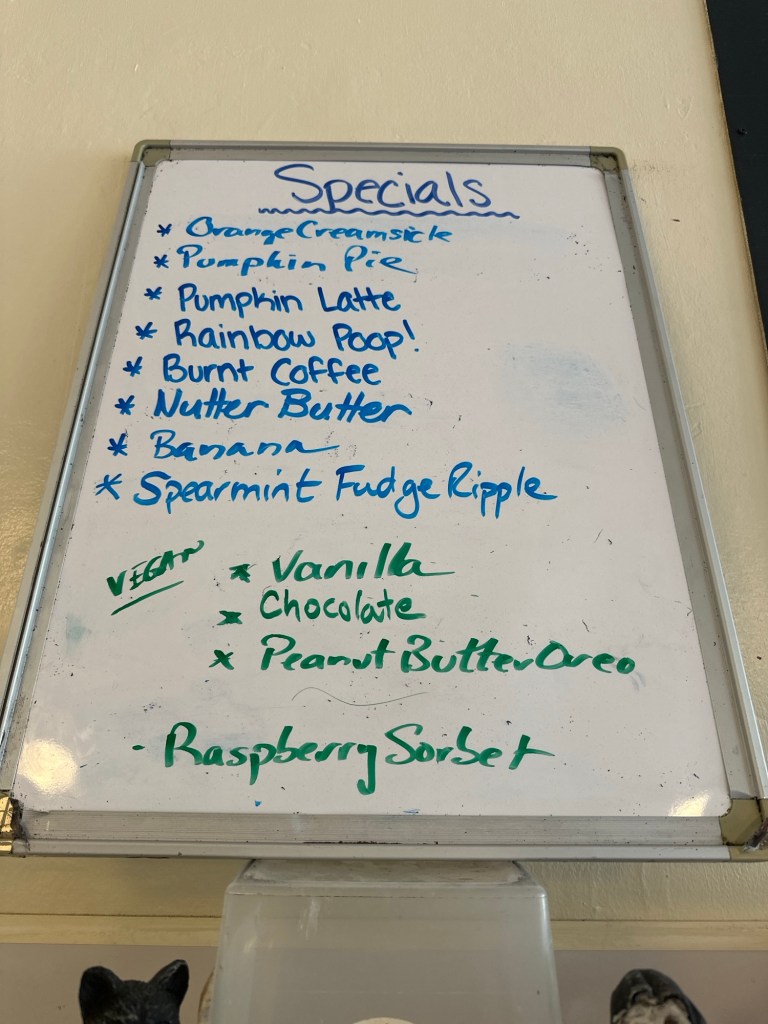 Specials
* Orange Creamsicle
* Pumpkin Pie
* Pumpkin Latte
* Rainbow Poop!
* Burnt Coffee
* Nutter Butter
* Banana
* Spearmint Fudge Ripple
VEGAN * Vanilla
* Chocolate
* Peanut Butter Oreo
- Raspberry Sorbet